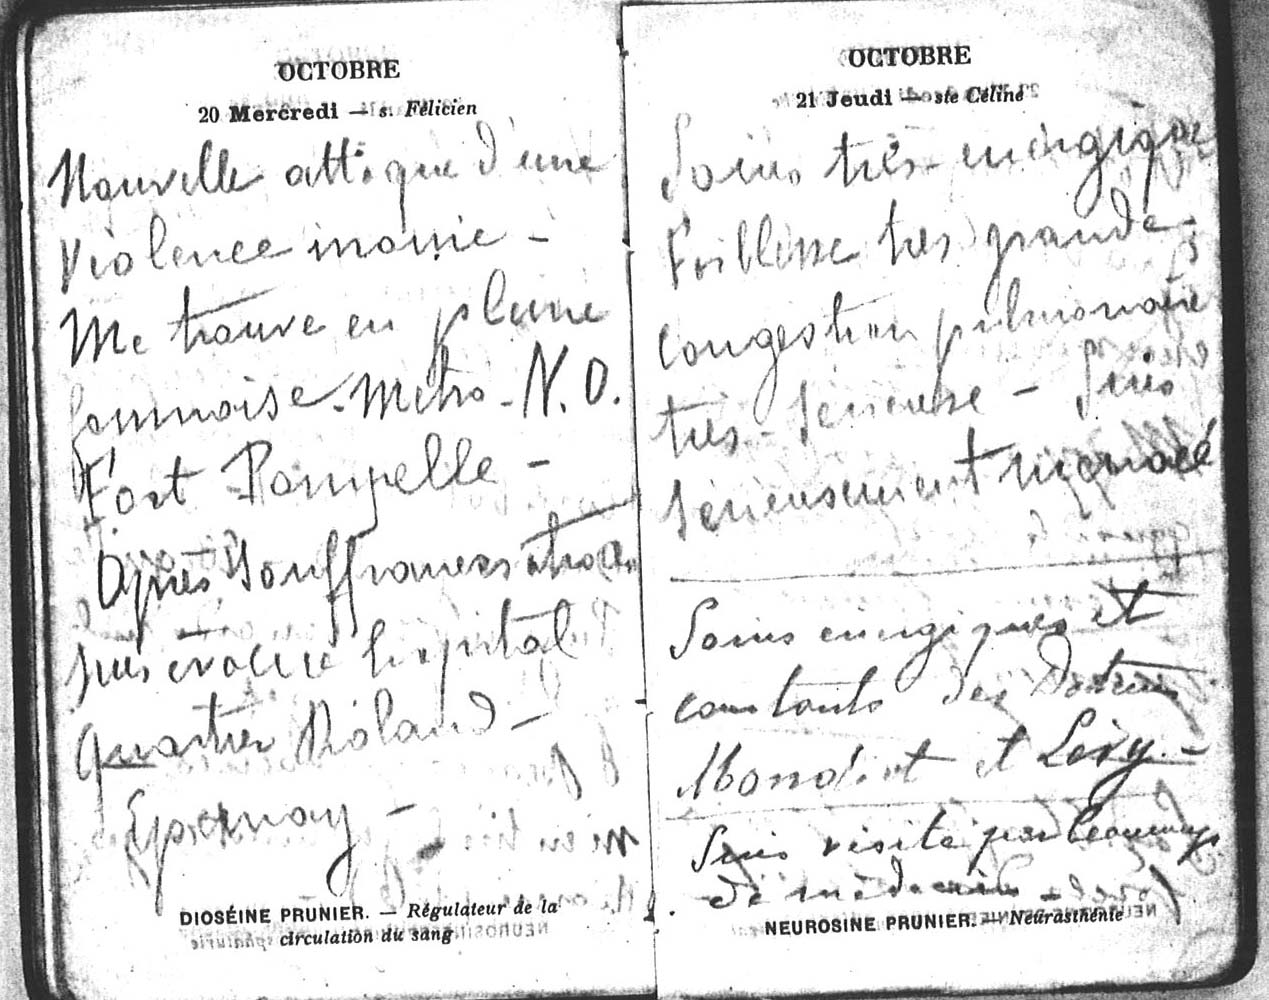 OCTOBRE
20 Mercredi — s. Félicien
Nouvelle attaque d'une
violence inouïe -
Me trouve en pleine
fournaise - Metro - N.O.
Fort Pompelle -
Après souffrances
suis évacué hopital
quartier Roland -
Epernay -
DIOSÉINE PRUNIER. — Régulateur de la
circulation du sang
OCTOBRE
21 Jeudi — ste Céline
Soins très energiques
Faiblesse tres grande -
congestion pulmonaire
très - serieuse - Suis
serieusement menacé
Soins energiques et
constants des Docteurs
et Levy -
Suis visité par beaucoup
de médecins -
NEUROSINE PRUNIER. — Neurasthénie